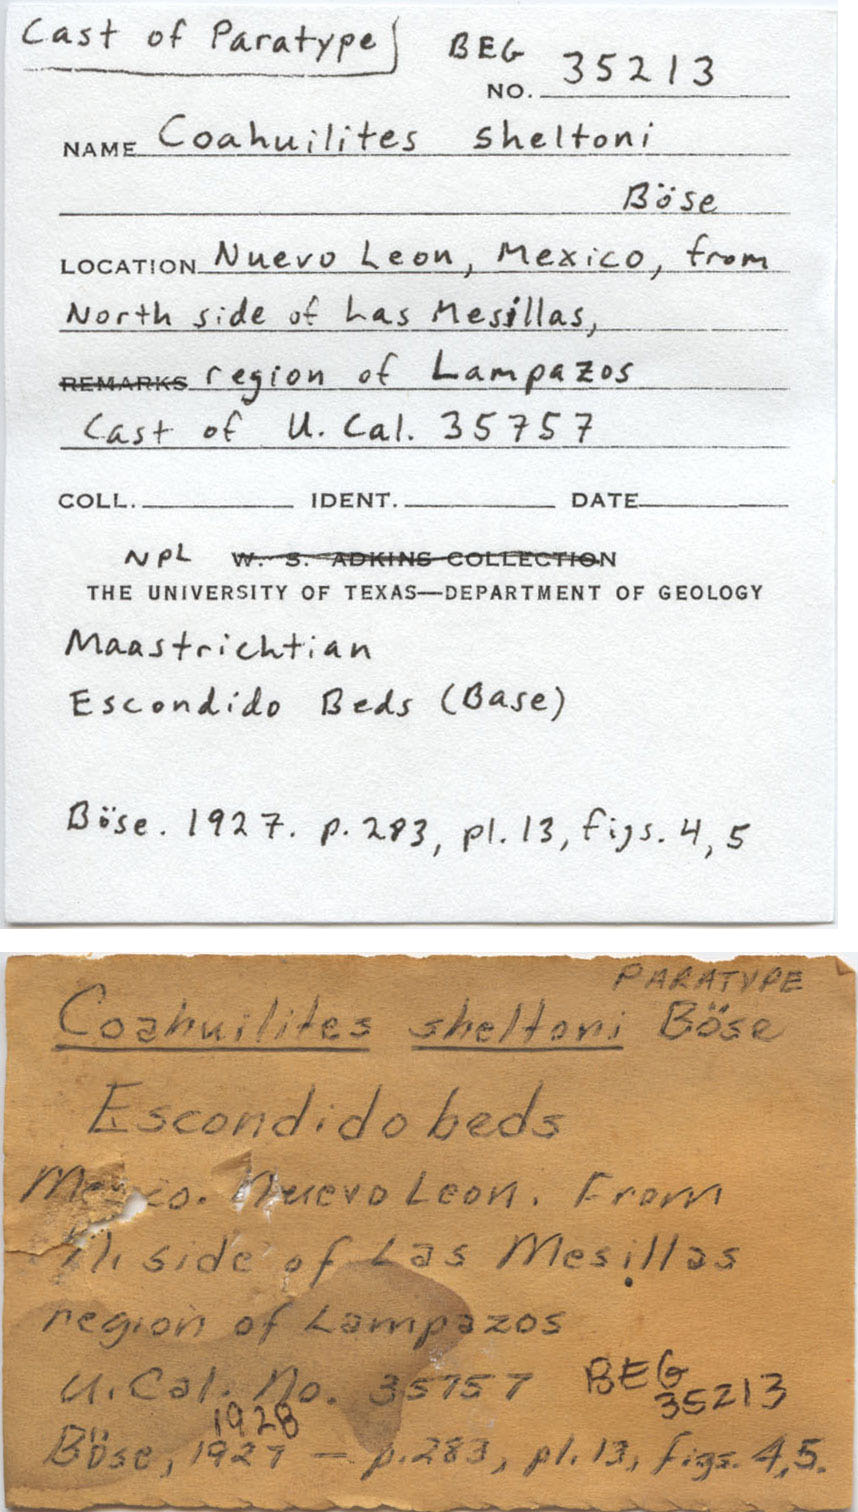 Cast of Paratype
BEG
NO. 35213
NAME Coahuilites sheltoni
Böse
LOCATION Nuevo Leon, Mexico, from
North side of Las Mesillas,
REMARKS region of Lampazos
Cast of U. Cal. 35757
COLL. IDENT. DATE
NPL W. S. ADKINS COLLECTION
THE UNIVERSITY OF TEXAS—DEPARTMENT OF GEOLOGY
Maastrichtian
Escondido Beds (Base)
Böse. 1927. p. 283, pl. 13, figs. 4, 5
PARATYPE
Coahuilites sheltoni Böse
Escondido beds
Nuevo Leon. From
N. side of Las Mesillas
region of Lampazos
U. Cal. No. 35757 BEG
35213
1928
Böse, 1927 — p. 283, pl. 13, figs. 4, 5.